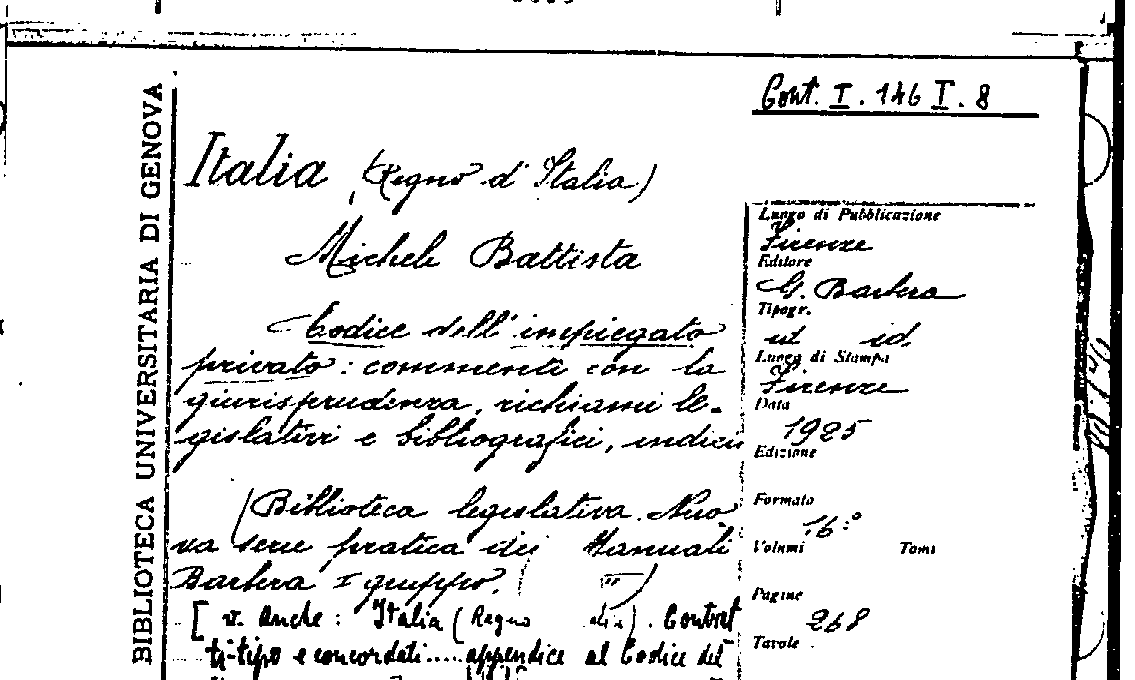 Cont. I. 146 I. 8
BIBLIOTECA UNIVERSITARIA DI GENOVA
Italia (Regno d'Italia)
Michele Battista
Codice dell'impiegato
privato: commenti con la
giurisprudenza, richiami le-
gislativi e bibliografici, indici
(Biblioteca legislativa. Nuo-
va serie pratica dei Manuali
Barbera I gruppo.
[v. anche: Italia (Regno d'). Contrat
ti-tipo e concordati.....appendice al Codice del
Luogo di Pubblicazione
Firenze
Editore
G. Barbera
Tipogr.
ut id
Luogo di Stampa
Firenze
Data
1925
Edizione
Formato
16°
Volumi Tomi
Pagine
268
Tavole